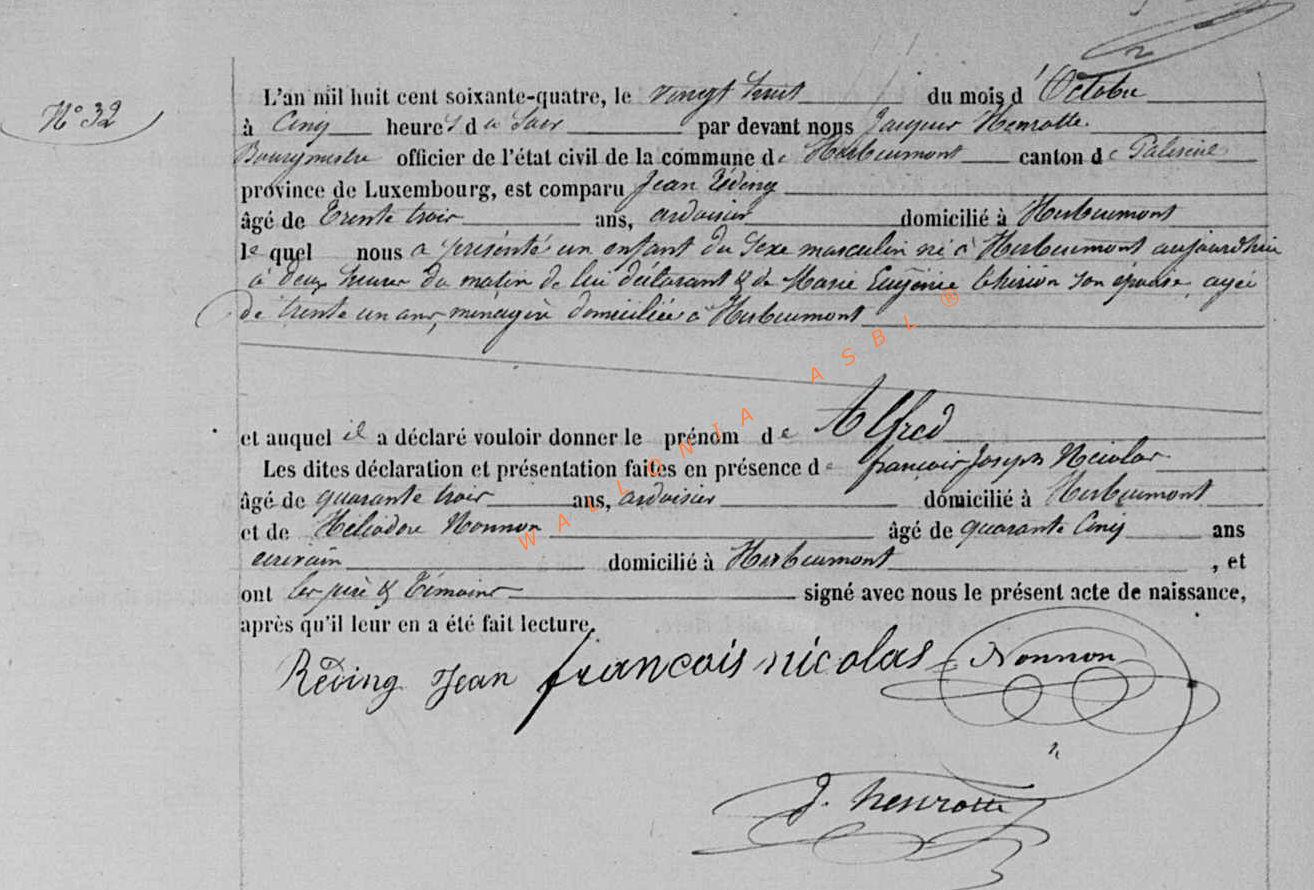 N° 32
L'an mil huit cent soixante-quatre, le vingt huit du mois d'Octobre
à Cinq heures du Soir par devant nous Jacques Henrotte
Bourgmestre officier de l'état civil de la commune de Herbeumont canton de Paliseul
province de Luxembourg, est comparu Jean Réding
âgé de trente trois ans, ardoisier domicilié à Herbeumont
le quel nous a présenté un enfant du sexe masculin né à Herbeumont aujourdhui
à deux heures du matin de lui déclarant & de Marie Eugénie Thirion son épouse, agée
de trente un ans, ménagère domiciliée à Herbeumont
et auquel il a déclaré vouloir donner le prénom de Alfred
Les dites déclaration et présentation faites en présence de françois Joseph Nicolas
âgé de quarante trois ans, ardoisier domicilié à Herbeumont
et de Héliodore Nonnon âgé de quarante Cinq ans
domicilié à Herbeumont, et
ont les père & témoins signé avec nous le présent acte de naissance,
après qu'il leur en a été fait lecture.
Réding Jean francois nicolas Nonnon
J. Henrotte
WALLONIA ASBL ®